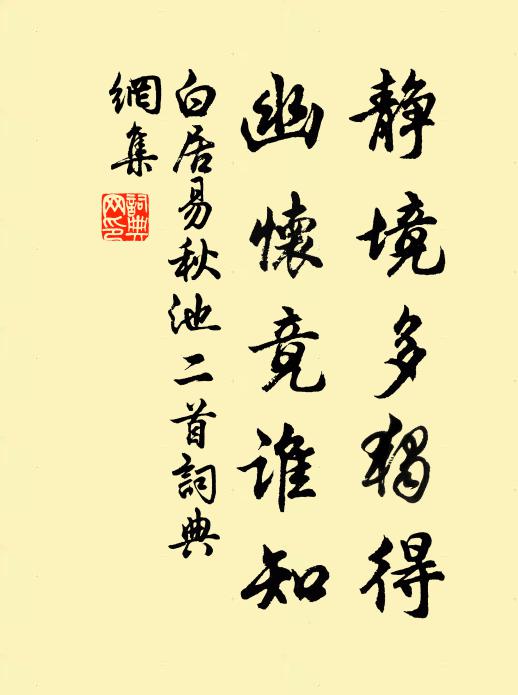 静境多獨得
幽懷竟誰知
白居易秋池二首詞典
網集
詞典
网印